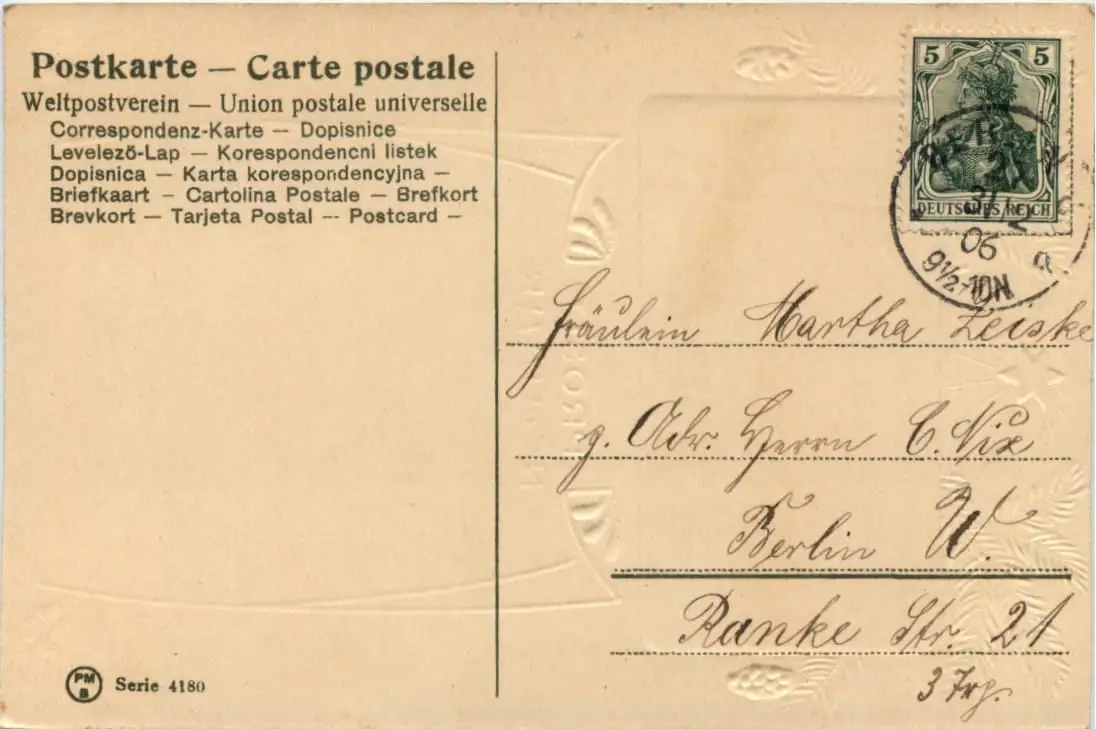 Postkarte — Carte postale
Weltpostverein — Union postale universelle
Correspondenz-Karte — Dopisnice
Levelező-Lap — Korespondencni listek
Dopisnica — Karta korespondencyjna —
Briefkaart — Cartolina Postale — Brefkort
Brevkort — Tarjeta Postal -- Postcard —
5 5
DEUTSCHES REICH
31 12
06
9½-10N
Fräulein Martha Zeiske
z. Adr. Herrn C. Nix
Berlin W.
Ranke Str. 21
3 Trp.
PM
B
Serie 4180